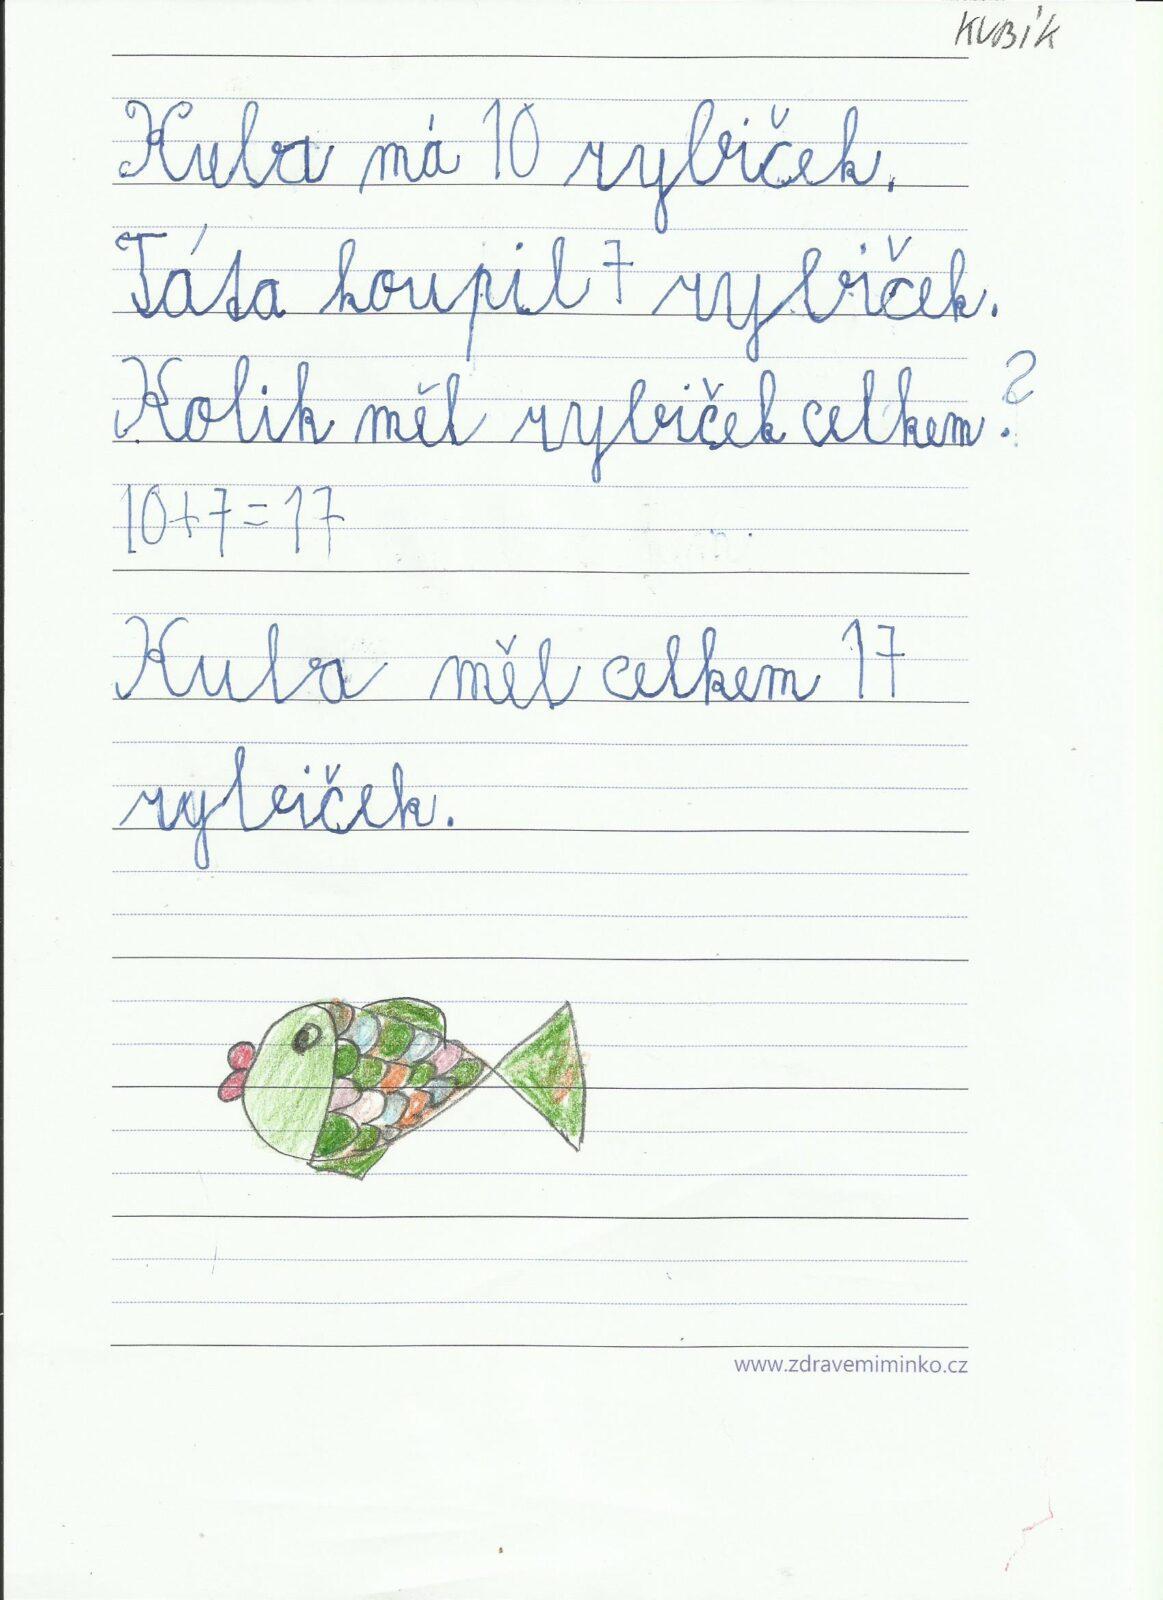 KUBÍK
Kuba má 10 rybiček.
Táta koupil 7 rybiček.
Kolik měl rybiček celkem?
10+7=17
Kuba měl celkem 17
rybiček.
www.zdravemiminko.cz